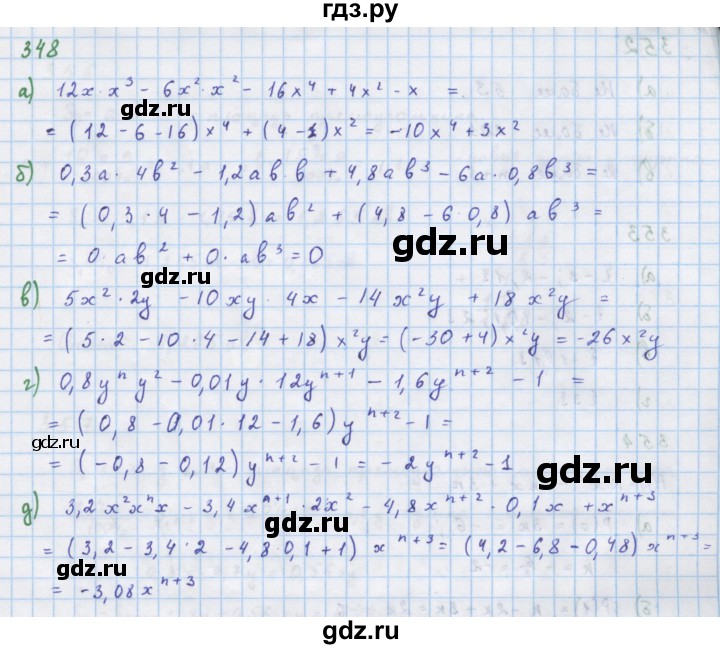 гдз.ру
348
а) 12x · x³ − 6x² · x² − 16x⁴ + 4x² − x =
= (12 − 6 − 16) x⁴ + (4 − 1) x² = −10x⁴ + 3x²
gdz.ru
б) 0,3a · 4b² − 1,2ab · b + 4,8ab³ − 6a · 0,8b³ =
= (0,3 · 4 − 1,2) ab² + (4,8 − 6 · 0,8) ab³ =
gdz.ru
= 0 · ab² + 0 · ab³ = 0
gdz.ru
в) 5x² · 2y − 10xy · 4x − 14x²y + 18x²y =
= (5 · 2 − 10 · 4 − 14 + 18) x²y = (−30 + 4) x²y = −26x²y
г) 0,8yⁿy² − 0,01y · 12yⁿ⁺¹ − 1,6yⁿ⁺² − 1 =
= (0,8 − 0,01 · 12 − 1,6) yⁿ⁺² − 1 =
gdz.ru
= (−0,8 − 0,12) yⁿ⁺² − 1 = − 2yⁿ⁺² − 1
gdz.ru
д) 3,2x²xⁿx − 3,4xⁿ⁺¹ · 2x² − 4,8xⁿ⁺² · 0,1x + xⁿ⁺³
gdz.ru
= (3,2 − 3,4 · 2 − 4,8 0,1 + 1) xⁿ⁺³ = (4,2 − 6,8 − 0,48) xⁿ⁺³ =
gdz.ru
= −3,08xⁿ⁺³
gdz.ru